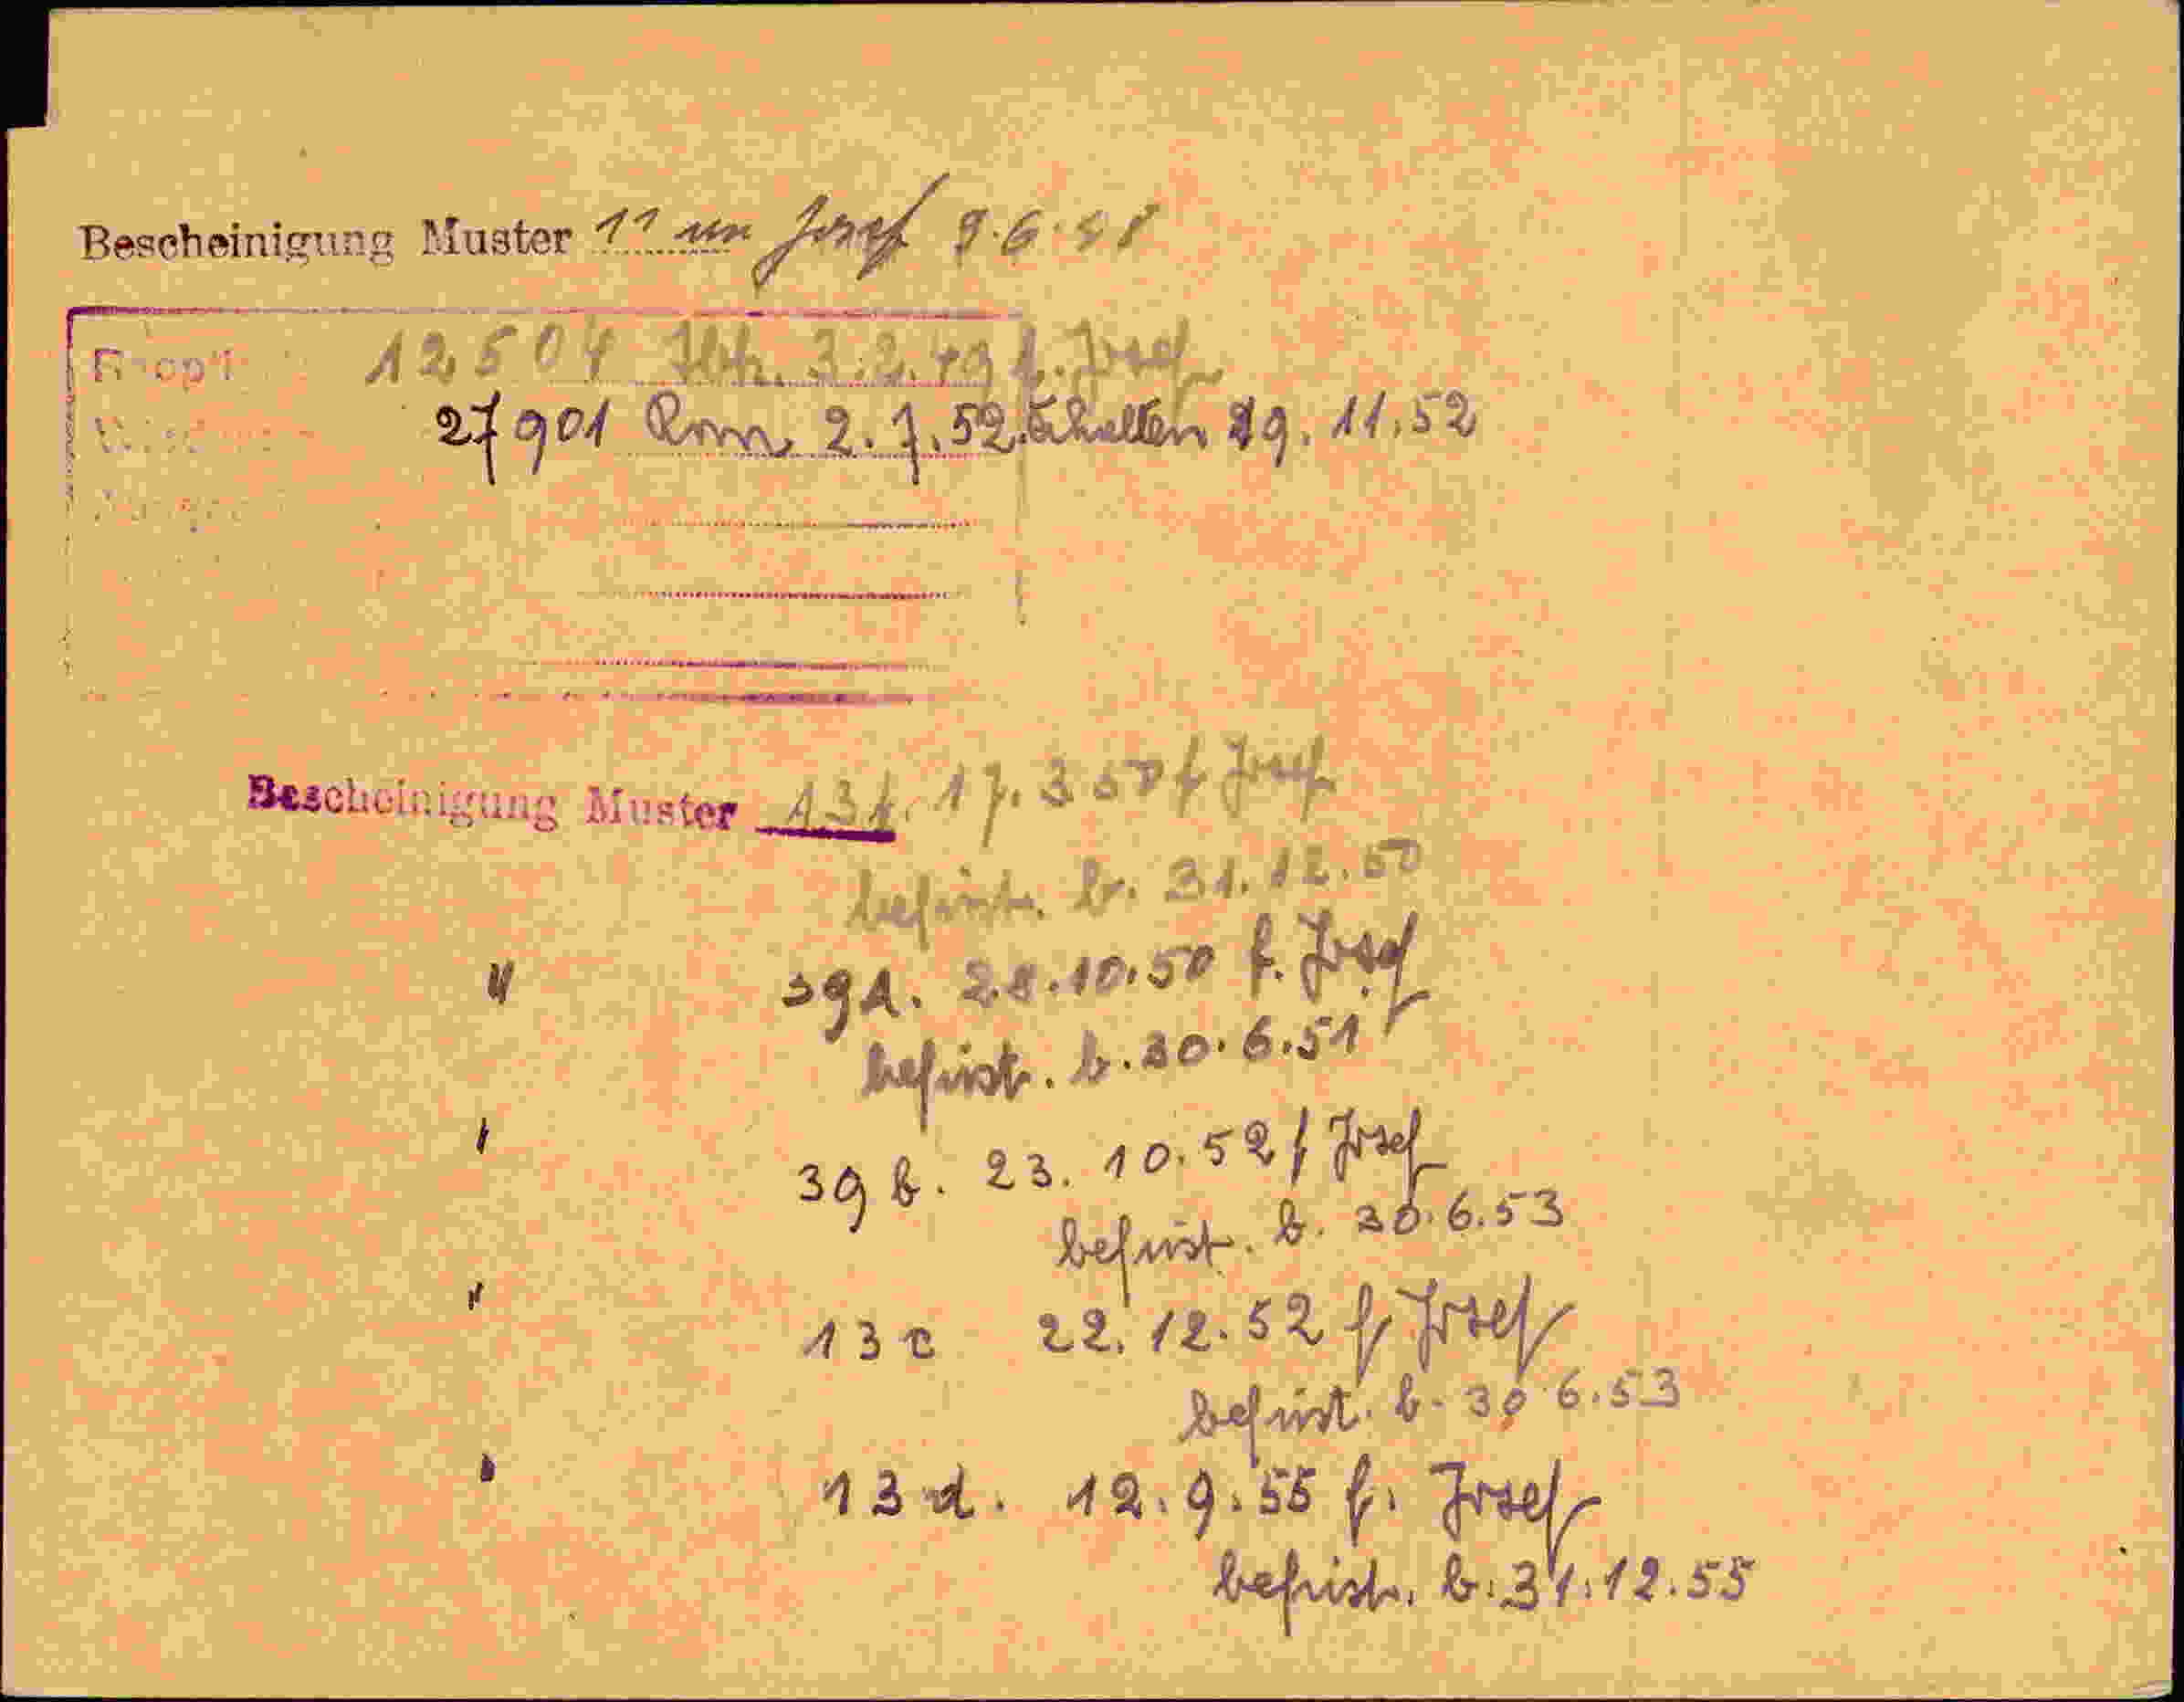 Bescheinigung Muster 11 un Josef 9.6.48
12504 3.2.49 f. Josef
27901 2.7.52. Erhalten 29.11.52
Bescheinigung Muster 13 17.3.50 f Josef
befrist. b. 31.12.50
" 39a. 28.10.50 f. Josef
befrist. b. 30.6.51
" 39 b. 23.10.52 f Josef
befrist. b. 30.6.53
" 13 c 22.12.52 f Josef
befrist. b. 30.6.53
" 13 d. 12.9.55 f. Josef
befrist. b. 31.12.55